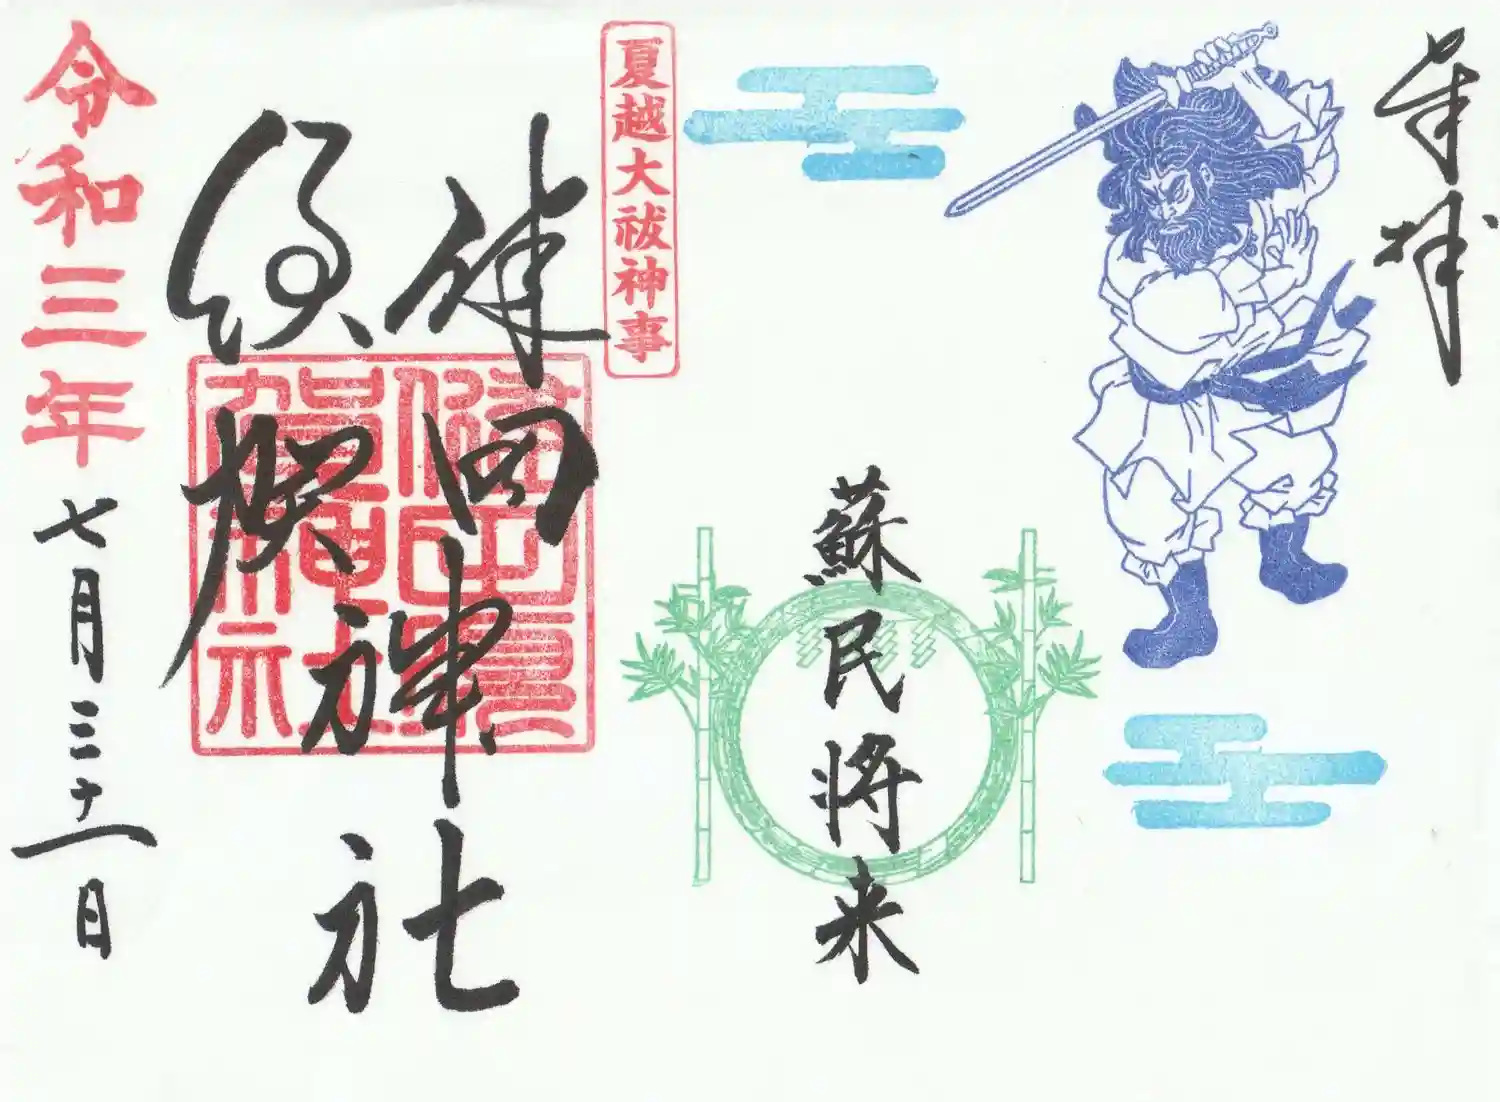 奉拝
蘇民将来
夏越大祓神事
健田
須賀
神社
健田須
賀神社
令和三年
七月三十一日